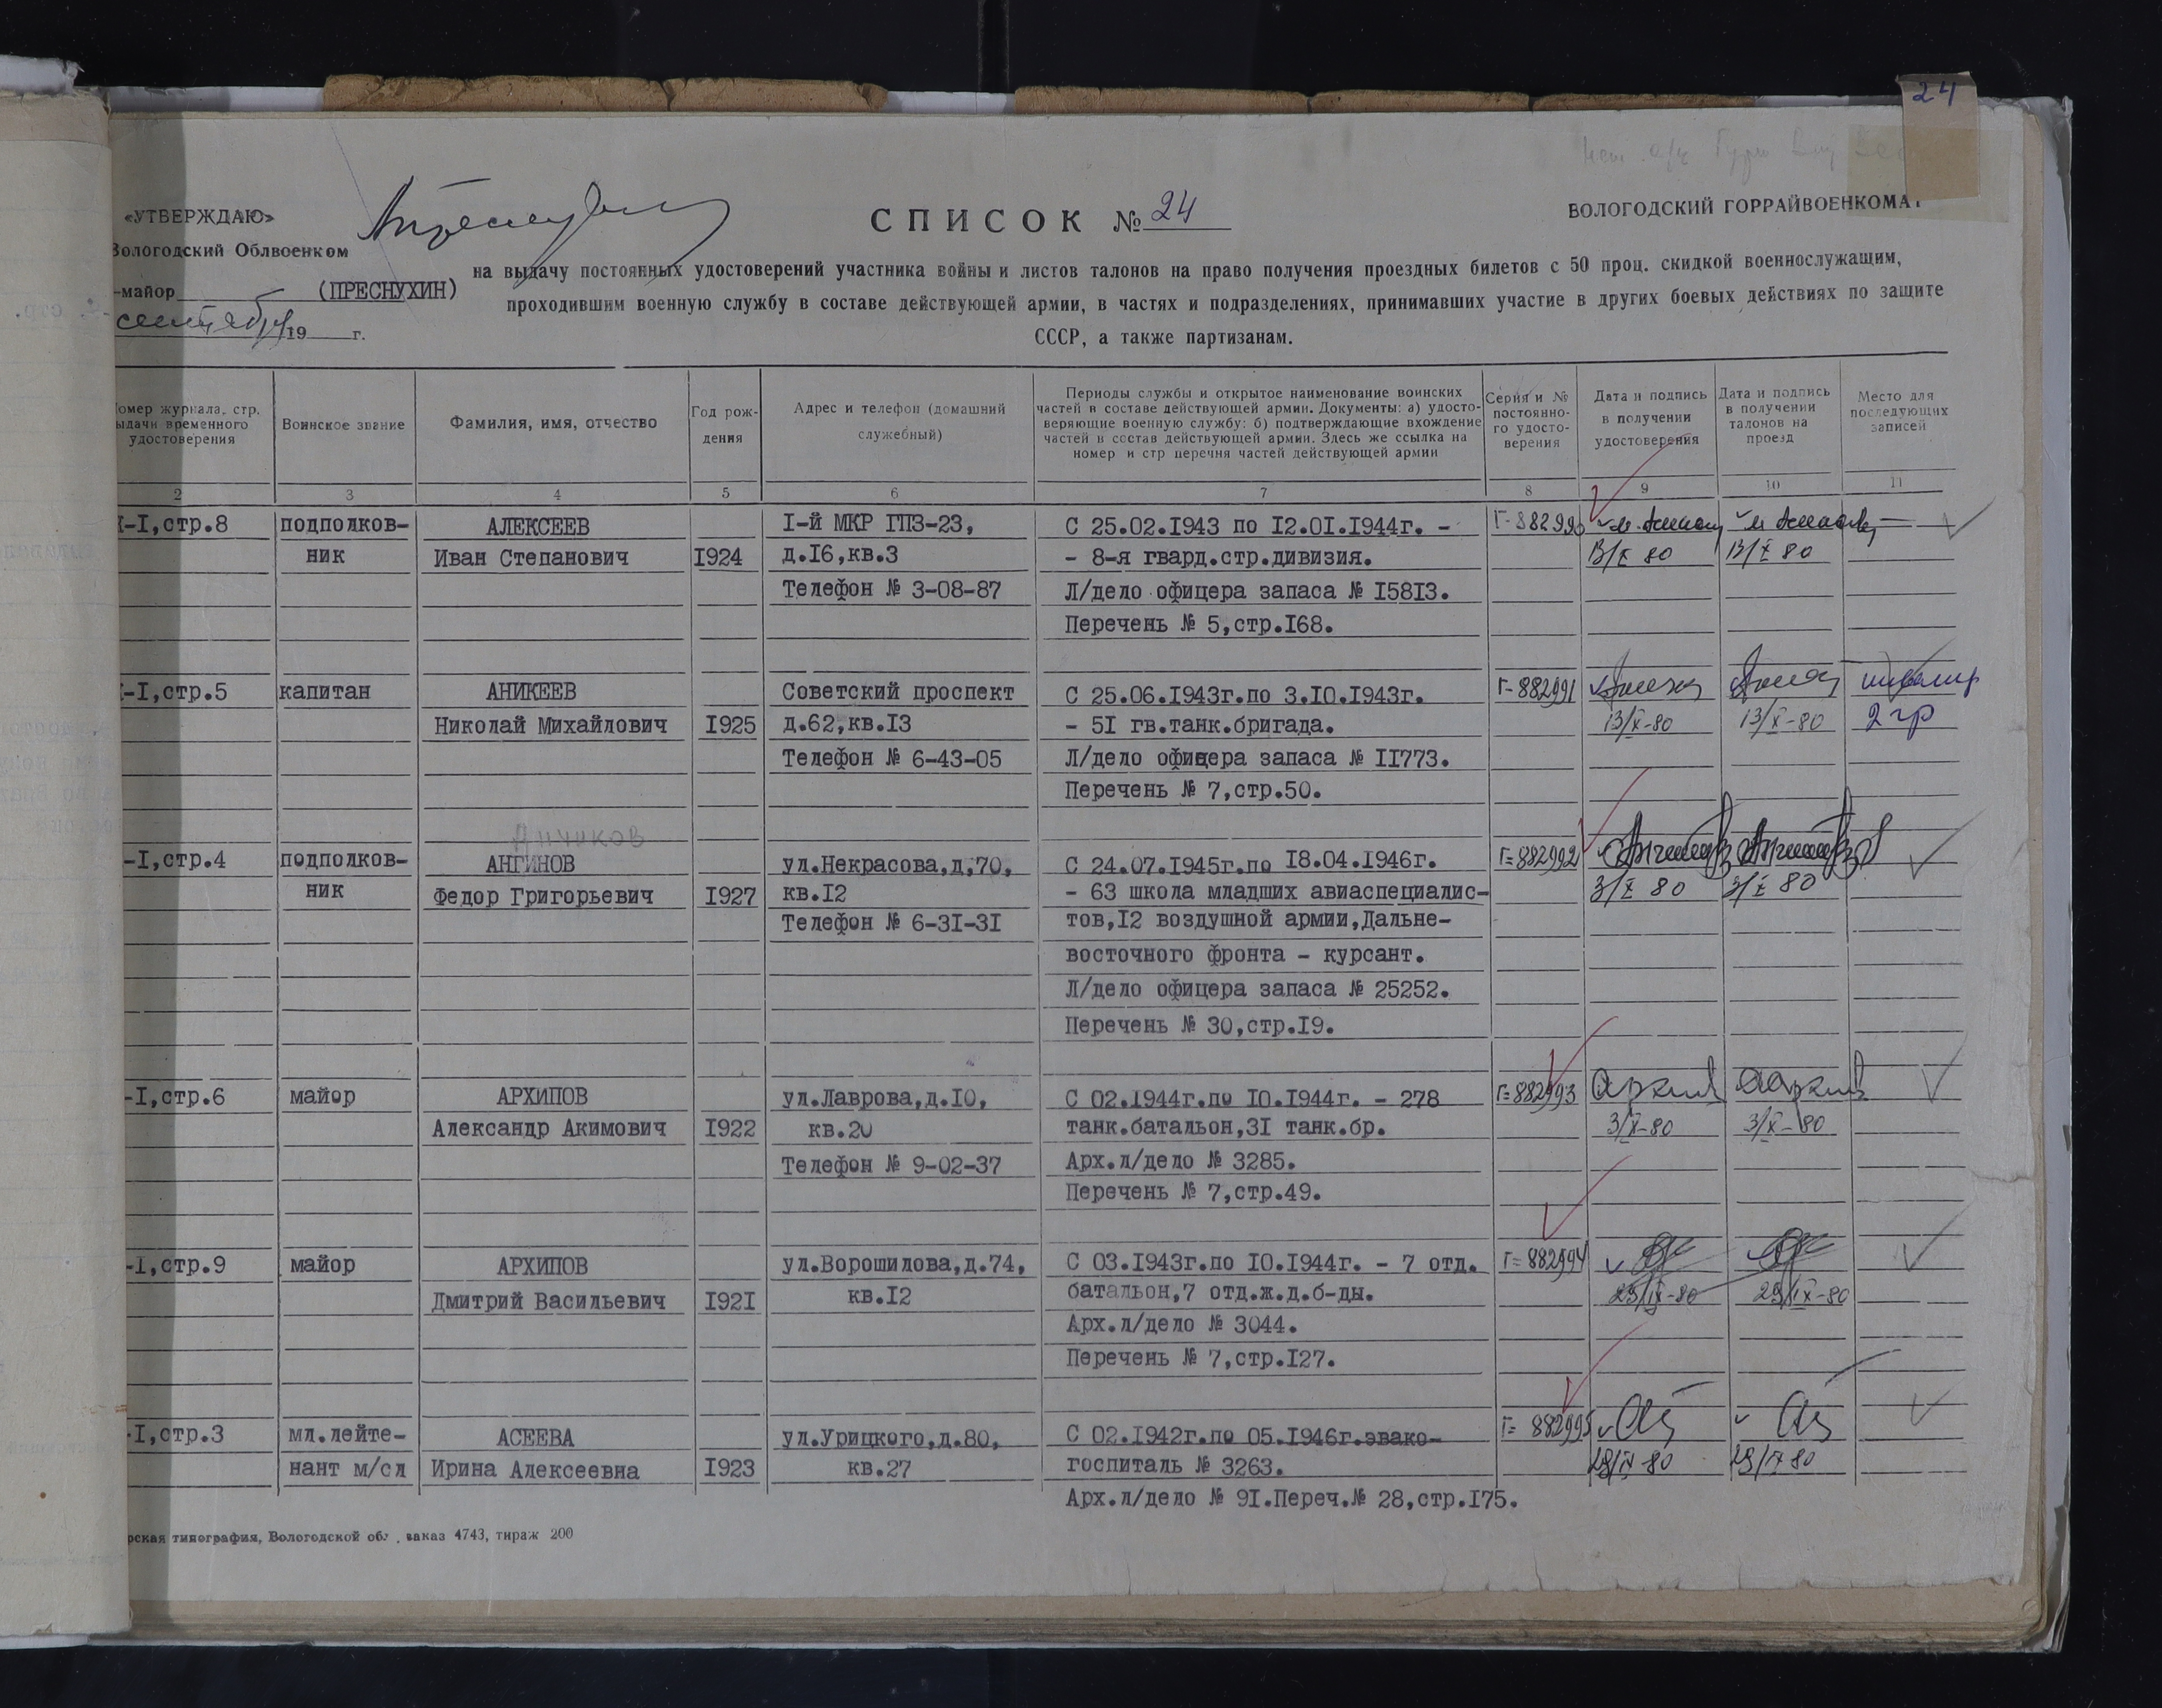 24
«УТВЕРЖДАЮ»
Вологодский Облвоенком
-майор (ПРЕСНУХИН)
сентября 19 г.
СПИСОК № 24
ВОЛОГОДСКИЙ ГОРРАЙВОЕНКОМАТ
на выдачу постоянных удостоверений участника войны и листов талонов на право получения проездных билетов с 50 проц. скидкой военнослужащим,
проходившим военную службу в составе действующей армии, в частях и подразделениях, принимавших участие в других боевых действиях по защите
СССР, а также партизанам.
омер журнала, стр.
ыдачи временного
удостоверения
Воинское звание
Фамилия, имя, отчество
Год рож-
дения
Адрес и телефон (домашний
служебный)
Периоды службы и открытое наименование воинских
частей в составе действующей армии. Документы: а) удосто-
веряющие военную службу: б) подтверждающие вхождение
частей в состав действующей армии. Здесь же ссылка на
номер и стр перечня частей действующей армии
Серия и №
постоянно-
го удосто-
верения
Дата и подпись
в получении
удостоверения
Дата и подпись
в получении
талонов на
проезд
Место для
последующих
записей
2 3 4 5 6 7 8 9 10 11
-I,стр.8
подполков-
ник
АЛЕКСЕЕВ
Иван Степанович
I924
I-й МКР ГПЗ-23,
д.I6,кв.3
Телефон № 3-08-87
С 25.02.I943 по I2.0I.I944г. -
- 8-я гвард.стр.дивизия.
Л/дело офицера запаса № I58I3.
Перечень № 5,стр.I68.
Г-882990
13/X 80
13/X 80
-I,стр.5
капитан
АНИКЕЕВ
Николай Михайлович
I925
Советский проспект
д.62,кв.I3
Телефон № 6-43-05
С 25.06.I943г.по 3.I0.I943г.
- 5I гв.танк.бригада.
Л/дело офицера запаса № II773.
Перечень № 7,стр.50.
Г-882991
13/X-80
13/X-80
инвалид
2 гр
-I,стр.4
подполков-
ник
Анчиков
АНГИНОВ
Федор Григорьевич
I927
ул.Некрасова,д,70,
кв.I2
Телефон № 6-3I-3I
С 24.07.I945г.по I8.04.I946г.
- 63 школа младших авиаспециалис-
тов,I2 воздушной армии,Дальне-
восточного фронта - курсант.
Л/дело офицера запаса № 25252.
Перечень № 30,стр.I9.
Г=882992
3/X 80
3/X 80
-I,стр.6
майор
АРХИПОВ
Александр Акимович
I922
ул.Лаврова,д.I0,
кв.20
Телефон № 9-02-37
С 02.I944г.по I0.I944г. - 278
танк.батальон,3I танк.бр.
Арх.л/дело № 3285.
Перечень № 7,стр.49.
Г=882993
3/X-80
3/X-80
-I,стр.9
майор
АРХИПОВ
Дмитрий Васильевич
I92I
ул.Ворошилова,д.74,
кв.I2
С 03.I943г.по I0.I944г. - 7 отд.
батальон,7 отд.ж.д.б-ды.
Арх.л/дело № 3044.
Перечень № 7,стр.I27.
Г=882994
29/IX-80
29/IX-80
-I,стр.3
мл.лейте-
нант м/сл
АСЕЕВА
Ирина Алексеевна
I923
ул.Урицкого,д.80,
кв.27
С 02.I942г.по 05.I946г.эвако-
госпиталь № 3263.
Арх.л/дело № 9I.Переч.№ 28,стр.I75.
Г= 882995
29/IX 80
29/IX 80
рская типография, Вологодской обл., заказ 4743, тираж 200